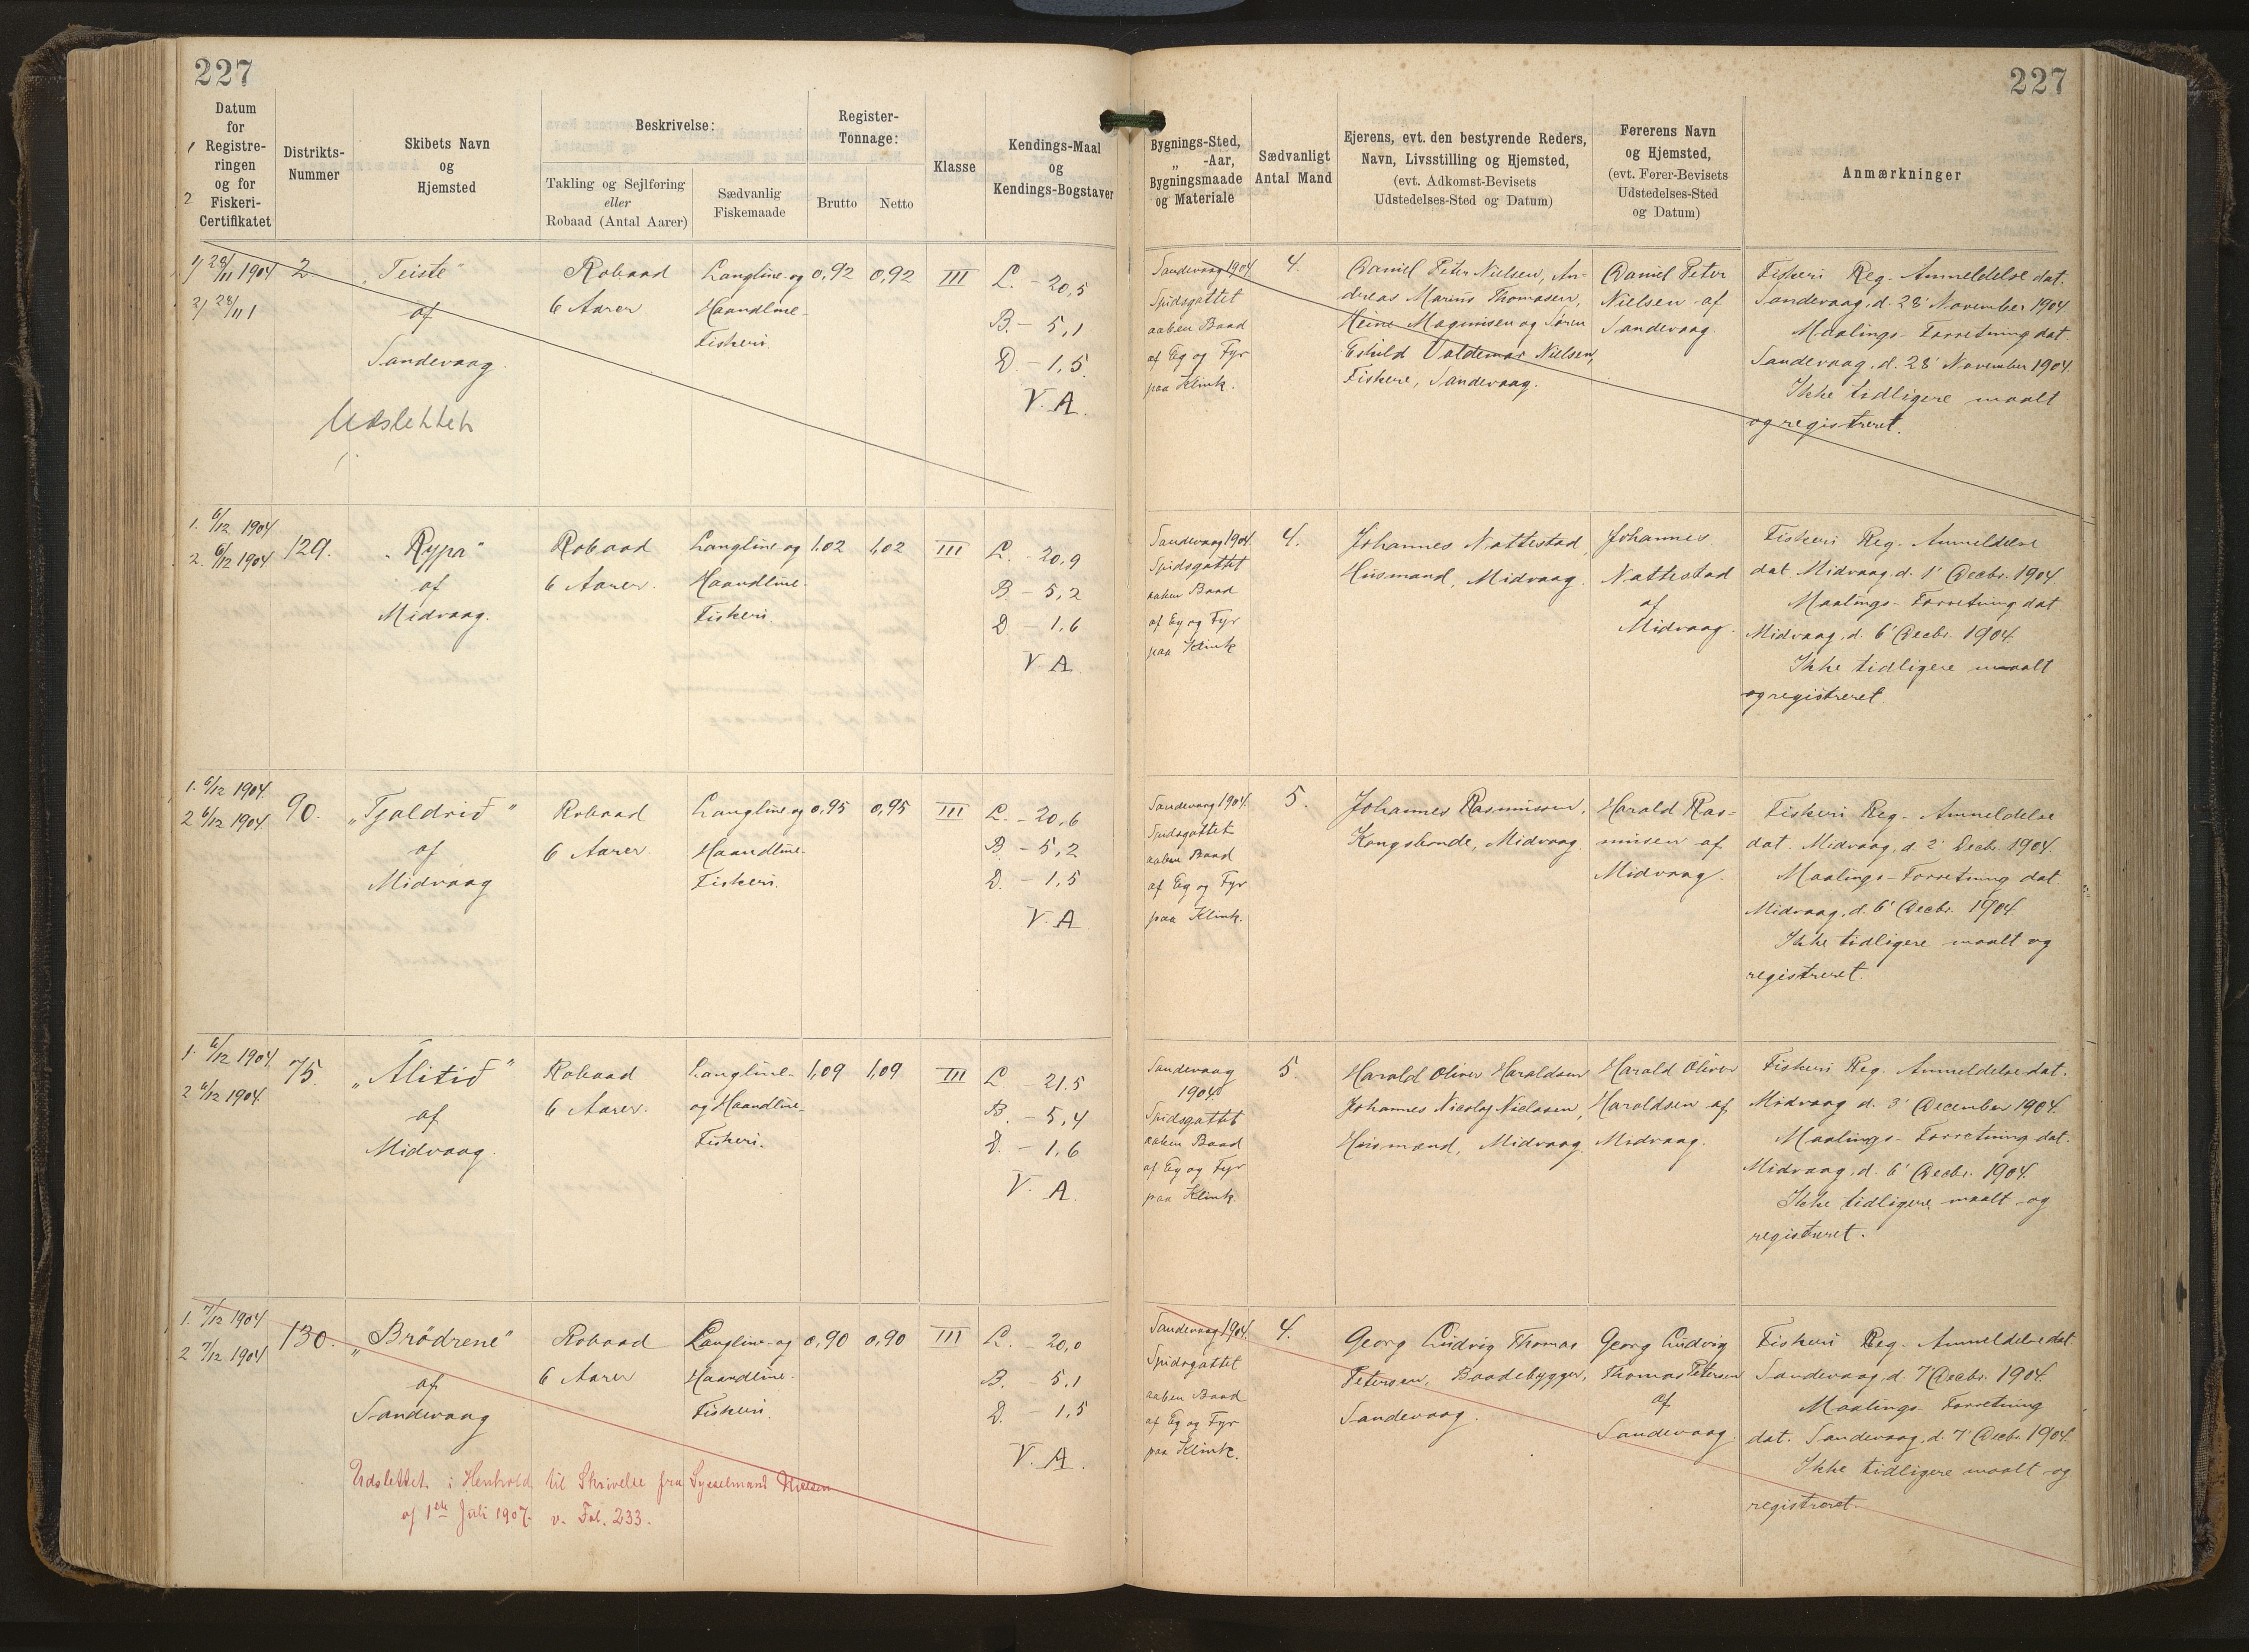 227
227
Datum
for
1 Registre-
ringen
og for
2 Fiskeri-
Certifikatet
Distrikts-
Nummer
Skibets Navn
og
Hjemsted
Beskrivelse:
Takling og Sejlføring
eller
Robaad (Antal Aarer)
Sædvanlig
Fiskemaade
Register-
Tonnage:
Brutto
Netto
Klasse
Kendings-Maal
og
Kendings-Bogstaver
Bygnings-Sted,
„ -Aar,
Bygningsmaade
og Materiale
Sædvanligt
Antal Mand
Ejerens, evt. den bestyrende Reders,
Navn, Livsstilling og Hjemsted,
(evt. Adkomst-Bevisets
Udstedelses-Sted og Datum)
Førerens Navn
og Hjemsted,
(evt. Fører-Bevisets
Udstedelses-Sted
og Datum)
Anmærkninger
1) 28/11 1904
2) 28/11
2
„Teiste"
af
Sandevaag
Udslettet
Robaad
6 Aarer
Langline- og
Haandline-
Fiskeri.
0,92
0,92
III
L. - 20,5
B. - 5,1
D. - 1,5
V. A.
Sandevaag 1904
Spidsgattet
aaben Baad
af Eg og Fyr
paa Klink.
4.
Daniel Peter Nielsen, An-
dreas Marius Thomasen,
Heine Magnusen og Søren
Eshild Valdemar Nielsen,
Fiskere, Sandevaag.
Daniel Peter
Nielsen af
Sandevaag.
Fiskeri Reg. Anmeldelse dat.
Sandevaag, d. 28' November 1904
Maalings-Forretning dat.
Sandevaag, d. 28' November 1904.
Ikke tidligere maalt
og registreret.
1. 6/12 1904
2. 6/12 1904
129.
„Rypa"
af
Midvaag.
Robaad
6 Aarer.
Langline og
Haandline-
Fiskeri.
1,02
1,02
III
L. - 20,9
B. - 5,2
D. - 1,6
V. A.
Sandevaag 1904.
Spidsgattet
aaben Baad
af Eg og Fyr
paa Klink
4.
Johannes Nattestad,
Husmand, Midvaag.
Johannes
Nattestad
af
Midvaag.
Fiskeri Reg. Anmeldelse
dat Midvaag, d. 1' Decbr. 1904
Maalings-Forretning dat
Midvaag, d. 6' Decbr. 1904
Ikke tidligere maalt
og registreret.
1. 6/12 1904.
2 6/12 1904.
90.
„Tjaldrið"
af
Midvaag
Robaad
6 Aarer.
Langline og
Haandline-
Fiskeri.
0,95
0,95
III
L. - 20,6
B. - 5,2
D. - 1,5
V. A
Sandevaag 1904.
Spidsgattet
aaben Baad
af Eg og Fyr
paa Klink.
5.
Johannes Rasmussen,
Kongsbonde, Midvaag.
Harald Ras-
mussen af
Midvaag.
Fiskeri Reg. Anmeldelse
dat. Midvaag, d. 2' Decbr. 1904.
Maalings-Forretning dat
Midvaag, d. 6' Decbr. 1904
Ikke tidligere maalt og
registreret.
1. 6/12 1904.
2 6/12 1904.
75.
„Álitið"
af
Midvaag.
Robaad
6 Aarer.
Langline-
og Haandline-
Fiskeri.
1,09
1,09
III
L. 21,5
B. - 5,4
D. - 1,6
V. A.
Sandevaag
1904
Spidsgattet
aaben Baad
af Eg og Fyr
paa Klink.
5.
Harald Oliver Haraldsen
Johannes Nicolaj Niclasen,
Husmænd, Midvaag.
Harald Oliver
Haraldsen af
Midvaag.
Fiskeri Reg. Anmeldelse dat.
Midvaag d. 3' December 1904.
Maalings-Forretning dat.
Midvaag, d. 6' Decbr. 1904.
Ikke tidligere maalt og
registreret.
1. 7/12 1904
2 7/12 1904
130.
„Brödrene"
af
Sandevaag
Robaad
6 Aarer
Langline- og
Haandline-
Fiskeri.
0,90
0,90
III
L. 20,0
B. 5,1
D. - 1,5
V. A.
Sandevaag 1904.
Spidsgattet
aaben Baad
af Eg og Fyr
paa Klink.
4.
Georg Ludvig Thomas
Petersen, Baadebygger,
Sandevaag.
Georg Ludvig
Thomas Petersen
af
Sandevaag
Fiskeri Reg. Anmeldelse dat
Sandevaag, d. 7' Decbr. 1904.
Maalings-Forretning
dat. Sandevaag, d. 7' Decbr. 1904.
Ikke tidligere maalt og
registreret.
Udslettet i Henhold til Skrivelse fra Sysselmand Nielsen
af 1ste Juli 1907. v. Fol. 233.